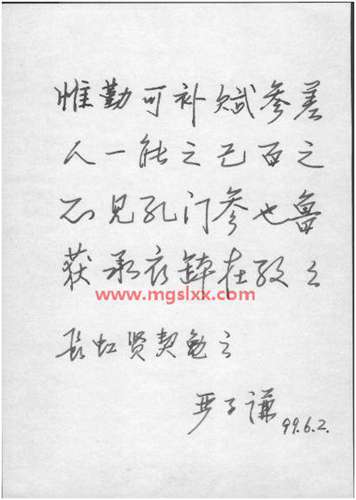 惟勤可补赋参差
人一能之己百之
不见孔门参也鲁
获承衣钵在孜之
www.mgslxx.com
长虹贤契勉之
严子谦
99.6.2.